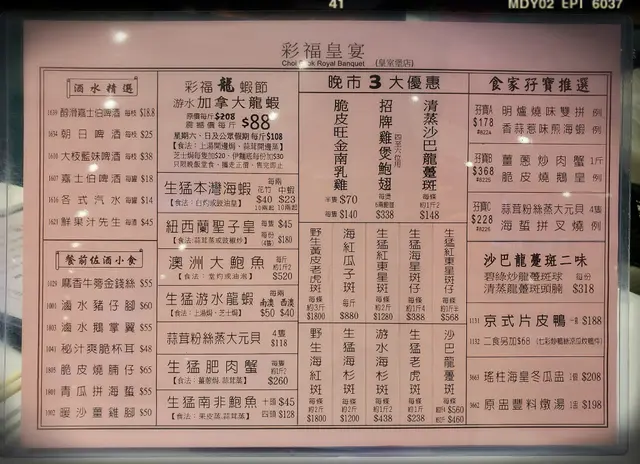 41
MDY02 EPT 6037
彩福皇宴
Choi Fook Royal Banquet (皇室堡店)
酒水精選
1639 醇滑嘉士伯啤酒 每枝 $18.8
1634 朝日啤酒 每枝 $25
1610 大枝藍妹啤酒 每枝 $38
1607 嘉士伯啤酒 每罐 $18
1616 各式汽水 每罐 $14
1621 鮮果汁先生 每杯 $45
餐前佐酒小食
1029 麻香牛蒡金錢絲 $55
1001 滷水豬仔腳 $60
1003 滷水鵝掌翼 $55
1041 秘汁爽脆杯耳 $48
1005 脆皮燒腩仔 $65
1801 青瓜拼海蜇 $55
1002 暖沙薑雞腳 $50
彩福龍蝦節
游水加拿大龍蝦
原價每斤$208
震撼價每斤 $88
星期六、日及公眾假期 每斤$108
(食法：上湯開邊焗、蒜茸開邊蒸)
芝士焗每隻加$20，伊麵底每份加$30
只限晚飯堂食，攜走正價，售完即止
生猛本灣海蝦
【食法：白灼或豉油皇】
每兩
花竹 中蝦
$40 $23
10兩起 10兩起
紐西蘭聖子皇
【食法：蒜茸蒸或豉椒炒】
每隻 $45
每份(4隻) $180
澳洲大鮑魚
【食法：堂灼或油泡】
每斤
約1斤2
$520
生猛游水龍蝦
【食法：上湯焗、芝士焗】
每兩
南澳 西澳
$50 $40
蒜茸粉絲蒸大元貝
4隻 $118
生猛肥肉蟹
【食法：薑蔥焗、蒜茸蒸】
每隻
約1斤2
$260
生猛南非鮑魚
【食法：果皮蒸、蒜茸蒸】
十頭 $45
四頭 $128
晚市3大優惠
脆皮旺金南乳雞
半隻 $70
每隻 $140
招牌雞煲鮑翅
四至六位用
每煲
$338
清蒸沙巴龍躉斑
每條
$148
野生黃皮老虎斑
每條
約3斤
$1800
海紅瓜子斑
每斤
$880
生猛紅東星斑
每條
$1280
生猛海星斑仔
每條
$388
生猛紅東星斑仔
每條
$568
野生海紅斑
每條
約2斤
$1800
生猛海杉斑
每條
約2斤
$1200
游水海杉斑
每條
$438
生猛老虎斑
每條
約1斤
$238
沙巴龍躉斑
每條
$560
$460
食家孖寶推選
孖寶A $178 #8224
明爐燒味雙拼 例
香蒜惹味煎海蝦 例
孖寶B $368 #8225
薑蔥炒肉蟹 1斤
脆皮燒鵝皇 例
孖寶C $228 #8226
蒜茸粉絲蒸大元貝 4隻
海蜇拼叉燒 例
沙巴龍躉斑二味
碧綠炒龍躉斑球
清蒸龍躉斑頭腩
每份 $318
1131 京式片皮鴨 一隻 $188
1132 二食另加$68
3663 瑤柱海皇冬瓜盅 1個 $208
3662 原盅豐料燉湯 1窩 $198